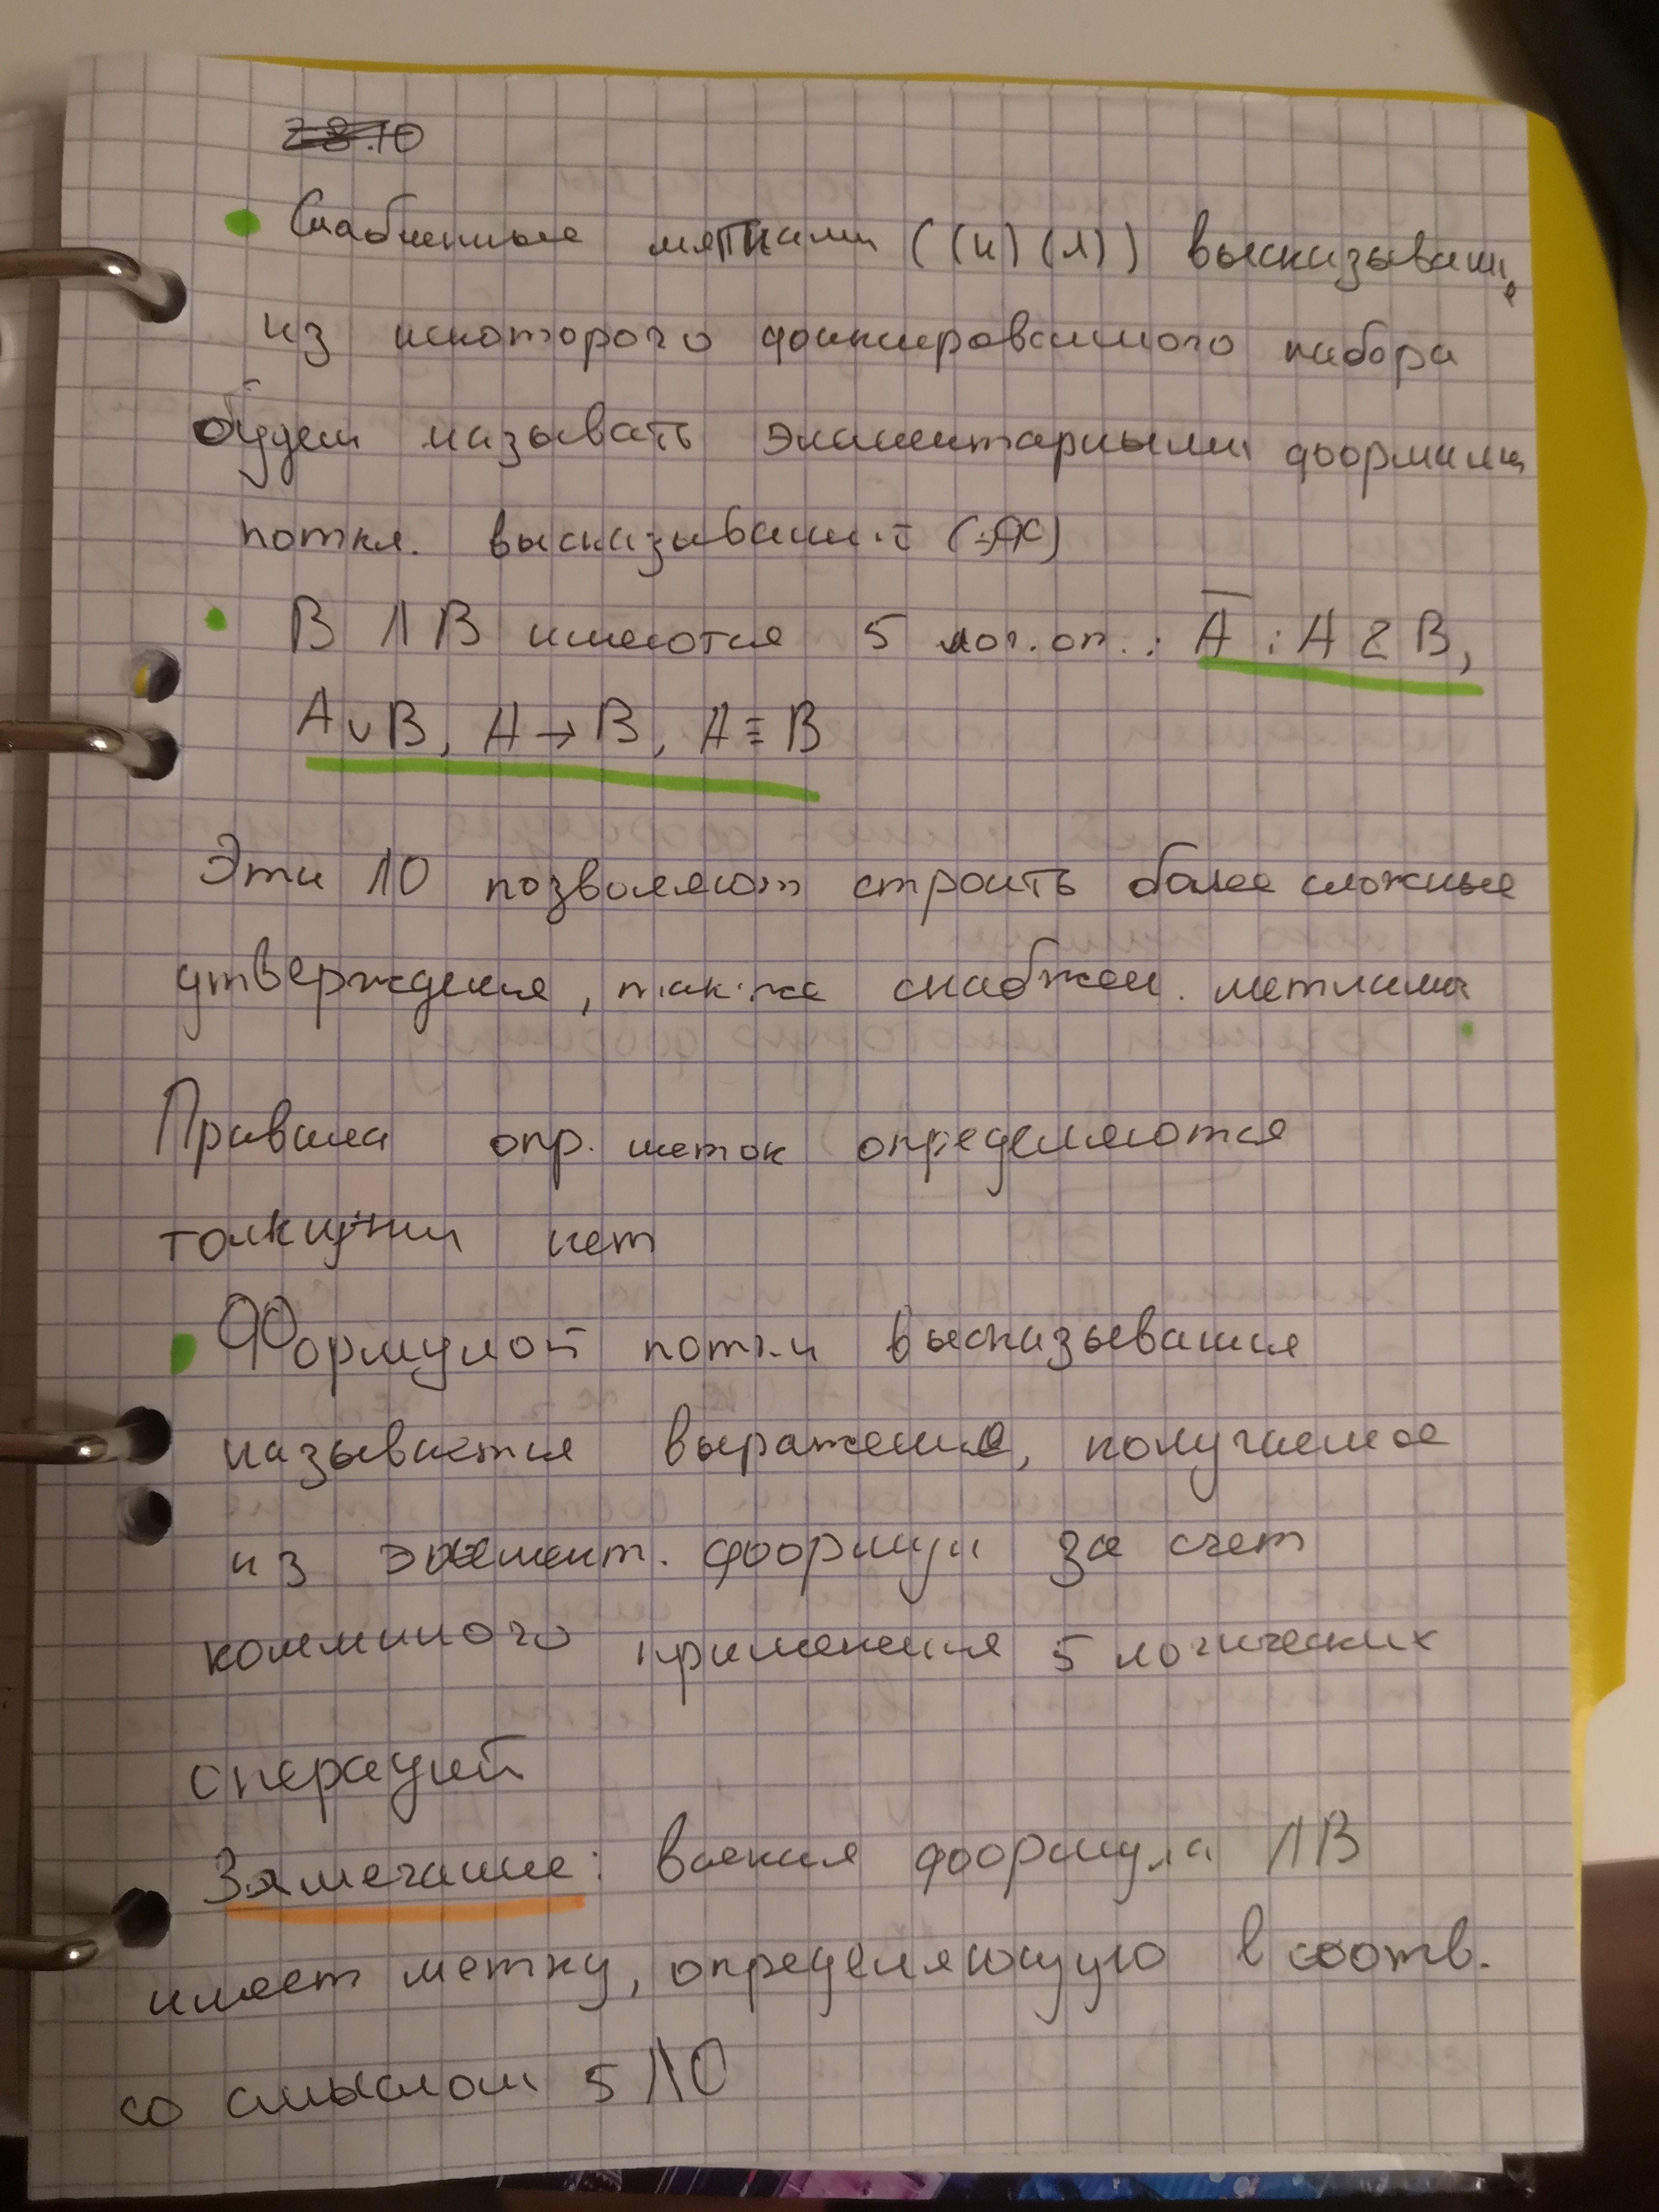 28.10
• Снабженные метками ((и) (л)) высказывание
из некоторого фиксированного набора
будем называть элементарными формулами
высказываний
• В ЛВ имеются 5 лог. оп.: A̅ ; A & B,
A ∨ B, A → B, A ≡ B
Эти ЛО позволяют строить более сложные
утверждения, также снабжен. метками
Правила опр. меток определяются
нет
• Формулой высказывания
называется выражение, получаемое
из элемент. формул за счет
применения 5 логических
операций
Замечание: всякая формула ЛВ
имеет метку, определяющую в соотв.
со смыслом 5 ЛО